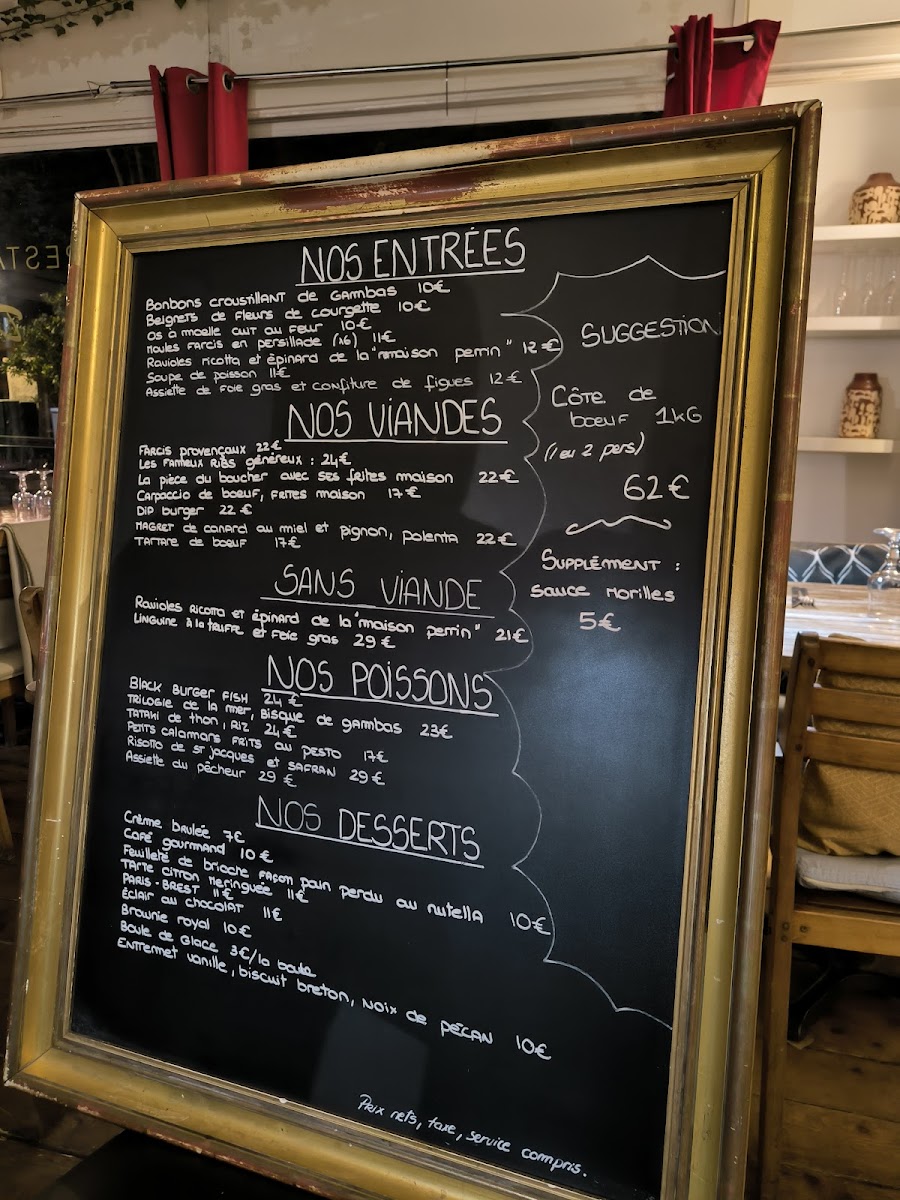 NOS ENTRÉES
Bonbons croustillant de Gambas 10€
Beignets de Fleurs de courgette 10€
Os à moelle cuit au Feur 10€
Moules Farcis en persillade (x6) 11€
Ravioles ricotta et épinard de la "maison perrin" 12€
Soupe de poisson 11€
Assiette de Foie gras et confiture de figues 12€
NOS VIANDES
Farcis provençaux 22€
Les Fameux Ribs généreux : 24€
La pièce du boucher avec ses frites maison 22€
Carpaccio de boeuf, Frites maison 17€
Dip burger 22€
Magret de canard au miel et pignon, polenta 22€
Tartare de boeuf 17€
SANS VIANDE
Ravioles Ricotta et épinard de la "maison perrin" 21€
Linguine à la truffe et Foie gras 29€
NOS POISSONS
Black Burger Fish 24€
Trilogie de la mer, Bisque de gambas 23€
Tataki de thon, Riz 24€
Petits calamars Frits au pesto 17€
Risotto de St Jacques et Safran 29€
Assiette du pêcheur 29€
NOS DESSERTS
Crème brulée 7€
Café gourmand 10€
Feuilleté de brioche Façon pain perdu au nutella 10€
Tarte citron meringuée 11€
Paris-Brest 11€
Éclair au chocolat 11€
Brownie royal 10€
Boule de Glace 3€/la boule
Entremet vanille, biscuit breton, noix de pécan 10€
Prix nets, taxe, service compris.
SUGGESTION
Côte de
boeuf 1kG
(1 ou 2 pers)
62€
Supplément :
sauce Morilles
5€